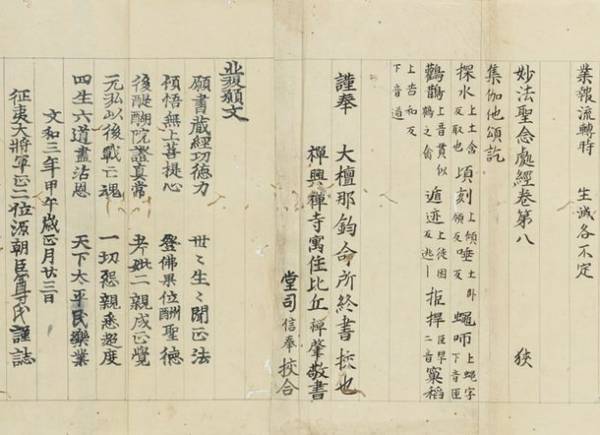 業報流轉時　生滅各不定
妙法聖念處經卷第八
集伽他頌訖
探水 上土含反取也 頃刻 上傾領反 唾 土卧反 上蝇字下音匣
鸛鶴 上音貫似鶴之禽 遁迹 上徒困反逃｜ 拒捍 巨旱二音 窠稻
上苦和反下音道
謹奉　大檀那鈞命所終書挍也
禪興禪寺寓住比丘禪肇敬書
堂司信奉挍合
發願文
願書藏經功德力　世々生々聞正法
頓悟無上菩提心　登佛果位酬聖德
後醍醐院證真常　考妣二親成正覺
元弘以後戰亡魂　一切怨親悉超度
四生六道盡沾恩　天下太平民樂業
文和三年甲午歲正月廿三日
征夷大將軍正二位源朝臣尊氏謹誌